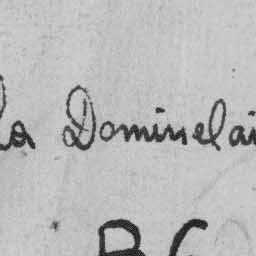 la Dominelai